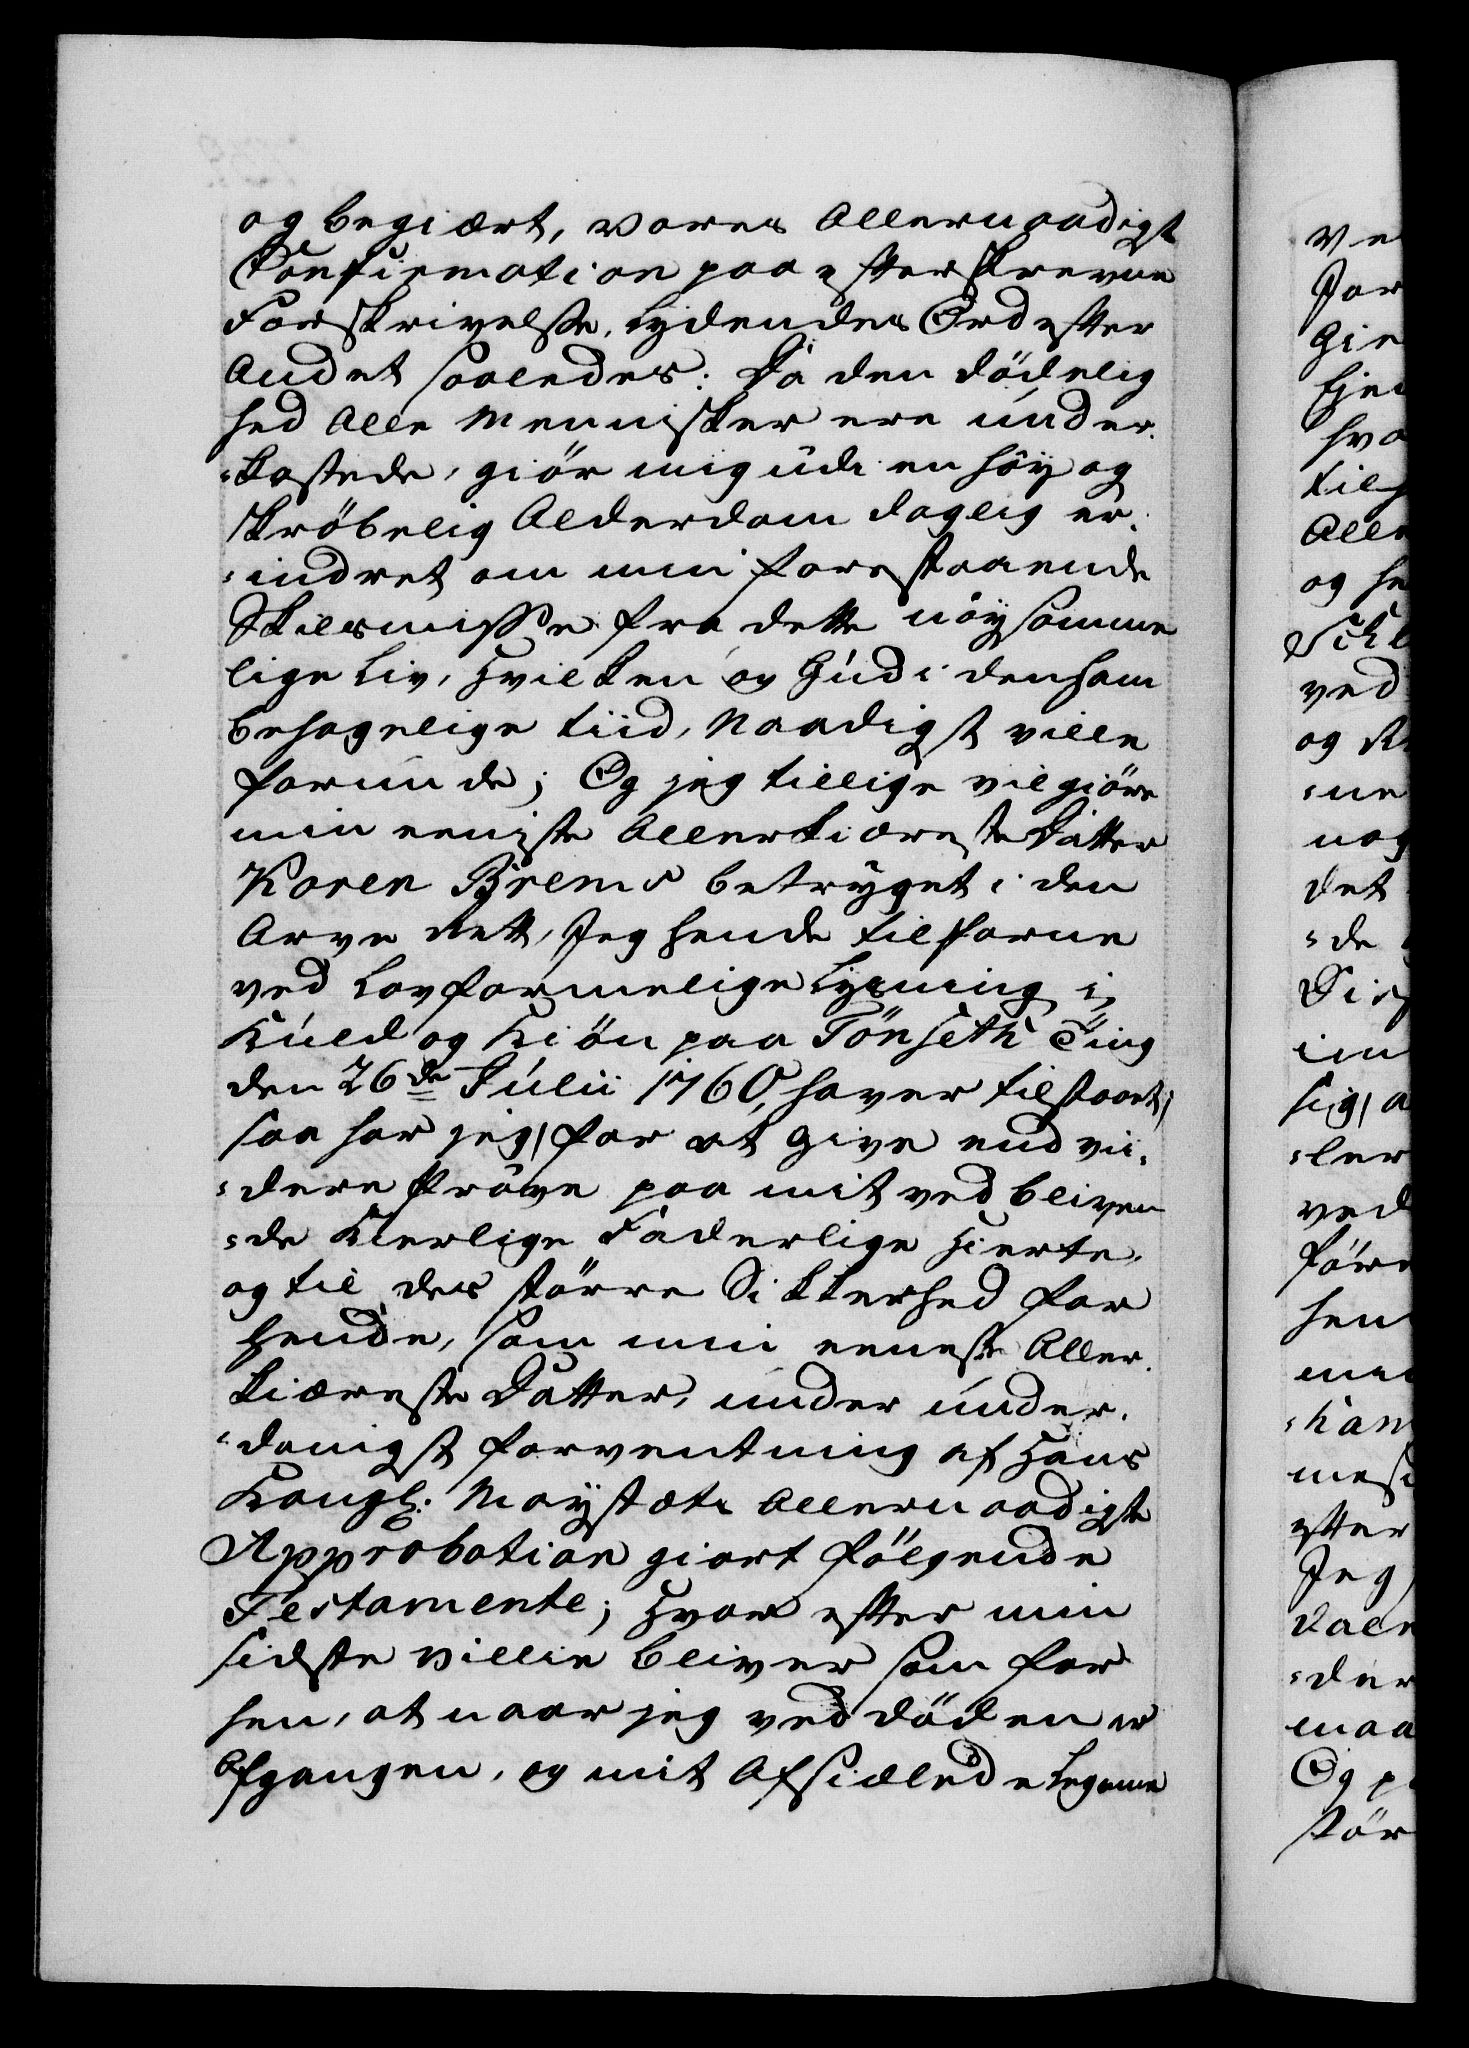 og begiært, vores allernaadigst
Confirmation paa efterskrevne
Forskrivelse, lydendes Ord efter
andet saaledes: Da den dödelig
hed alle Mennisker ere under-
-kastede, giör mig udi en höy og
skröbelig Alderdom daglig er-
-indret om min forestaaende
Skilsmisse fra dette möysomme
lige Liv, hvilken og Gud i den ham
behagelige tiid, Naadigst ville
forunde; Og jeg tillige vil giöre
min eeniste allerkiæreste Datter
Karen Brems betrygget i den
Arve Rett, Jeg hende tilforne
ved Lovformelige Lysning i
Kuld og Kiön paa Tönseth Ting
den 26de Julii 1760, haver tilstaaet,
saa har jeg, for at give end vii-
-dere Pröve paa mit ved bliven
-de Kierlige Faderlige Hierte,
og til des större Sikkerhed for
hende, som min eeneste Aller-
kiæreste Datter, under under-
-danigst forventning af Hans
Kongl: Mayestæts allernaadigste
Approbation giort fölgende
Testamente; hvor efter min
sidste Villie bliver som för
hen, at naar jeg ved döden er
afgangen, og mit afsiælede Legeme
ve
For
gie
Ejen
hva
til
Alle
og he
Skl
ved
og
-ne
nog
det
-de
Dis
im
sig, a
-ler
ved
före
hen
min
-kam
mest
efter
Jeg
dale
-der
maa
Og p
stör